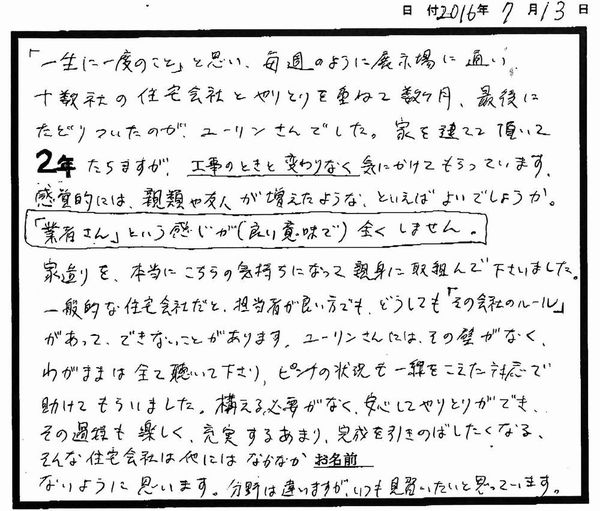 日付2016年7月13日
「一生に一度のこと」と思い、毎週のように展示場に通い、
十数社の住宅会社とやりとりを重ねて数ケ月、最後に
たどりついたのが、ユーリンさんでした。家を建てて頂いて
2年たちますが、工事のときと変わりなく気にかけてもらっています。
感覚的には、親類や友人が増えたような、といえばよいでしょうか。
「業者さん」という感じが(良い意味で)全くしません。
家造りを、本当にこちらの気持ちになって親身に取組んで下さいました。
一般的な住宅会社だと、担当者が良い方でも、どうしても「その会社のルール」
があって、できないことがあります。ユーリンさんには、その壁がなく、
わがままは全て聴いて下さり、ピンチの状況も一線をこえた対応で
助けてもらいました。構える必要がなく、安心してやりとりができ、
その過程も楽しく、充実するあまり、完成を引きのばしたくなる、
そんな住宅会社は他にはなかなか お名前
ないように思います。分野は違いますが、いつも見習いたいと思っています。